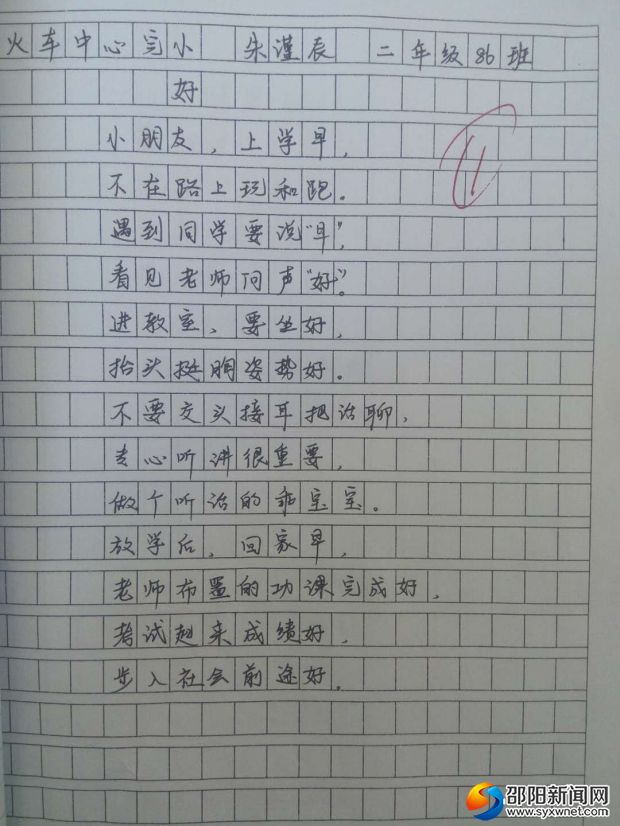 火车中心完小 朱谨辰 二年级86班
好
小朋友，上学早，
不在路上玩和跑。
遇到同学要说“早”，
看见老师问声“好”。
进教室，要坐好，
抬头挺胸姿势好。
不要交头接耳把话聊，
专心听讲很重要，
做个听话的乖宝宝。
放学后，回家早，
老师布置的功课完成好，
考试起来成绩好，
步入社会前途好。
邵阳新闻网
www.syxwnet.com